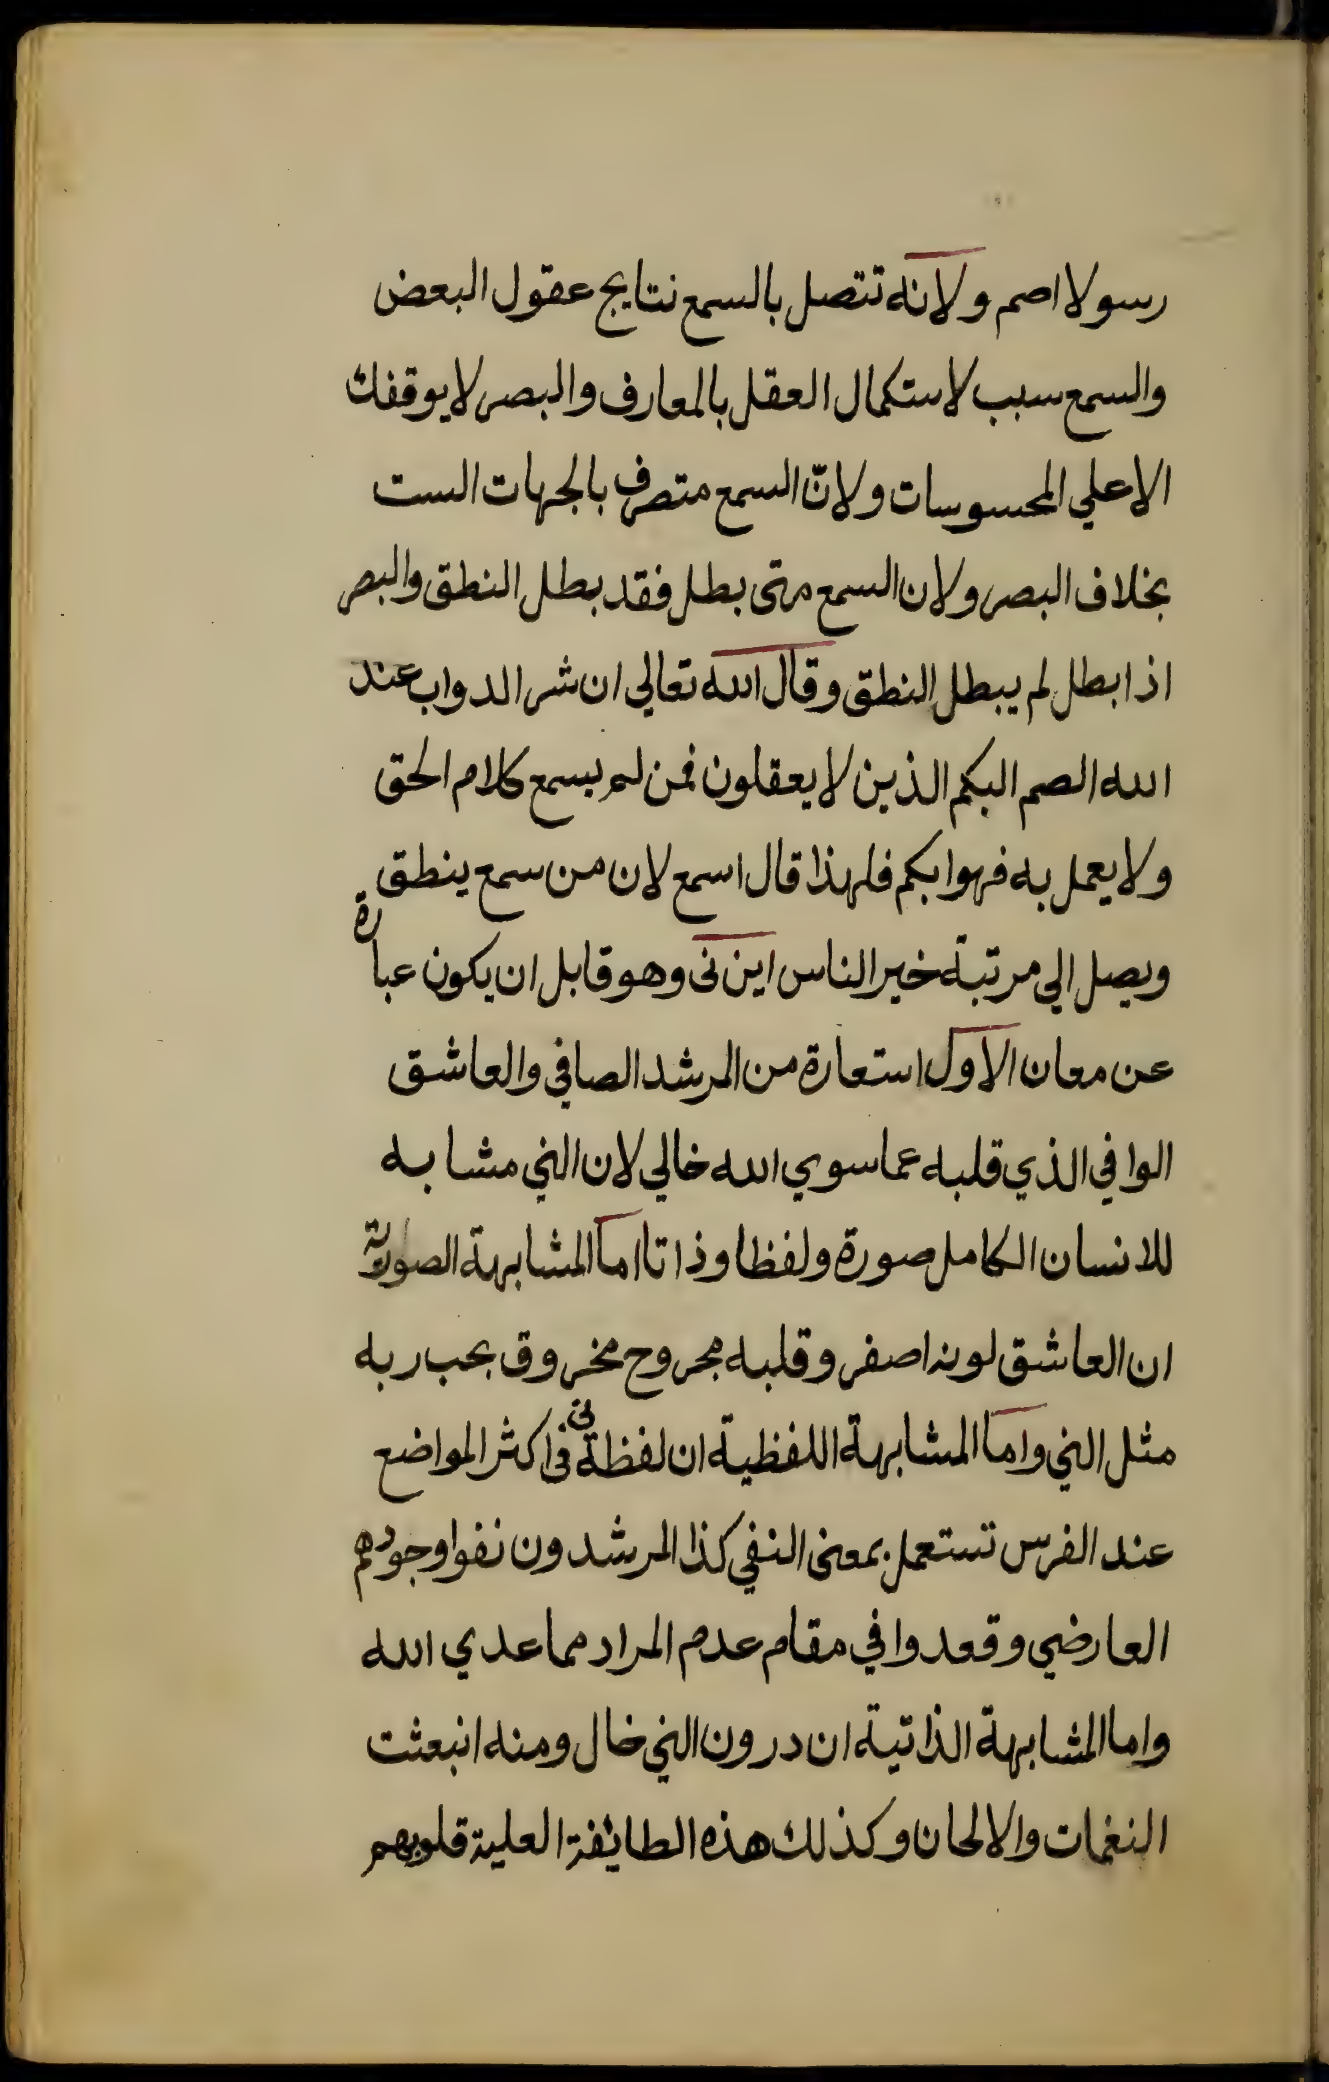 رسولا اصم ولانه تتصل بالسمع نتايج عقول البعض
والسمع سبب لاستكمال العقل بالمعارف والبصر لا يوقفك
الا علي المحسوسات ولانّ السمع متصرف بالجهات الست
بخلاف البصر ولان السمع متى بطل فقد بطل النطق والبصر
اذا بطل لم يبطل النطق وقال الله تعالي ان شر الدواب عند
الله الصم البكم الذين لا يعقلون فمن لم يسمع كلام الحق
ولا يعمل به فهو ابكم فلهذا قال اسمع لان من سمع ينطق
ويصل الي مرتبة خير الناس اين نى وهو قابل ان يكون عبارة
عن معان الاول استعارة من المرشد الصافي والعاشق
الوافي الذي قلبه عما سوي الله خالي لان الني مشابه
للانسان الكامل صورة ولفظا وذاتا اما المشابهة الصورية
ان العاشق لونه اصفر وقلبه مجروح مخروق بحب ربه
مثل الني واما المشابهة اللفظية ان لفظة نى فى اكثر المواضع
عند الفرس تستعمل بمعنى النفي كذا المرشدون نفوا وجودهم
العارضي وقعدوا في مقام عدم المراد مما عدي الله
واما المشابهة الذاتية ان درون الني خال ومنه انبعثت
النغمات والالحان وكذلك هذه الطايفة العلية قلوبهم